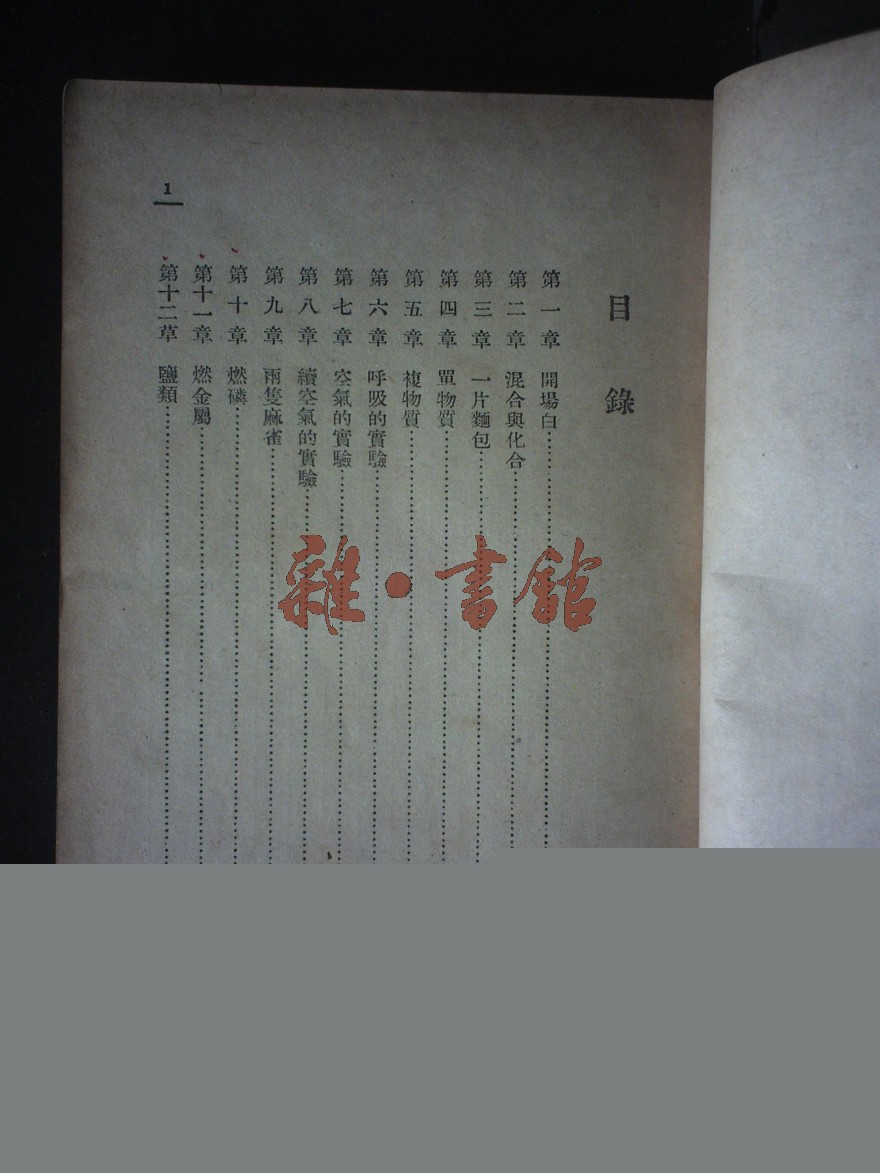 目錄
第一章 開場白
第二章 混合與化合
第三章 一片麵包
第四章 單物質
第五章 複物質
第六章 呼吸的實驗
第七章 空氣的實驗
第八章 續空氣的實驗
第九章 兩隻麻雀
第十章 燃磷
第十一章 燃金屬
第十二草 鹽類
1
雜·書館